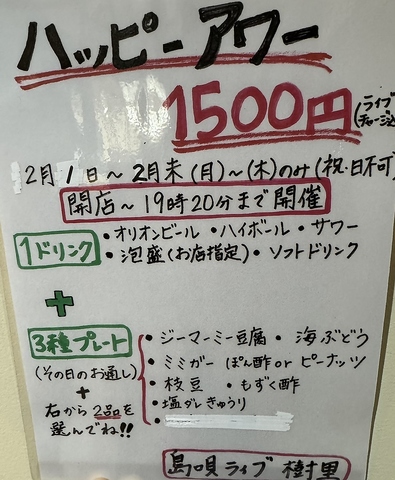 ハッピーアワー
1500円(ライブチャージ込
2月1日～2月末(月)～(木)のみ(祝・日不可)
開店～19時20分まで開催
1ドリンク ・オリオンビール ・ハイボール ・サワー
・泡盛(お店指定)・ソフトドリンク
+
3種プレート ・ジーマーミー豆腐 ・海ぶどう
(その日のお通し) ・ミミガー ぽん酢orピーナッツ
+ ・枝豆 ・もずく酢
右から2品を ・塩ダレきゅうり
選んでね!! ・
島唄ライブ 樹里